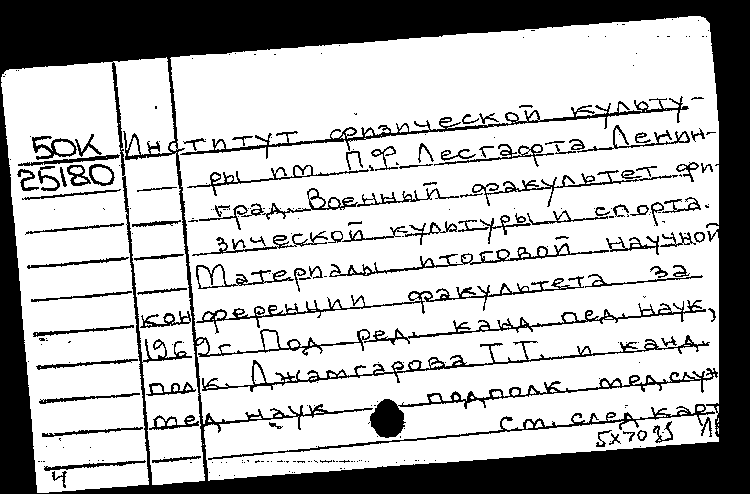 50К Институт физической культу-
25180 ры им. П.Ф. Лесгафта. Ленин-
град. Военный факультет фи-
зической культуры и спорта.
Материалы итоговой научной
конференции факультета за
1969г. Под ред. канд. пед. наук,
полк. Джамгарова Т.Т. и канд.
мед. наук подполк. мед. служ
См. след. карт
4